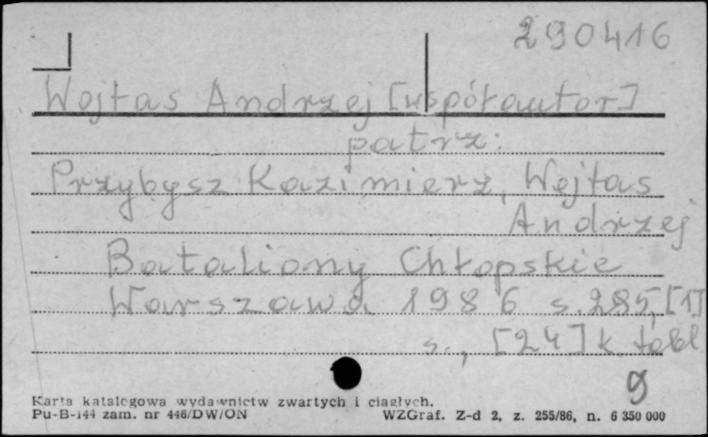 290416
Wojtas Andrzej [współautor]
patrz:
Przybysz Kazimierz, Wojtas
Andrzej
Bataliony Chłopskie
Warszawa 1986 s. 285, [1]
s., [24] k. tabl
9
Karta katalogowa wydawnictw zwartych i ciągłych.
Pu-B-144 zam. nr 446/DW/ON WZGraf. Z-d 2, z. 255/86, n. 6 350 000